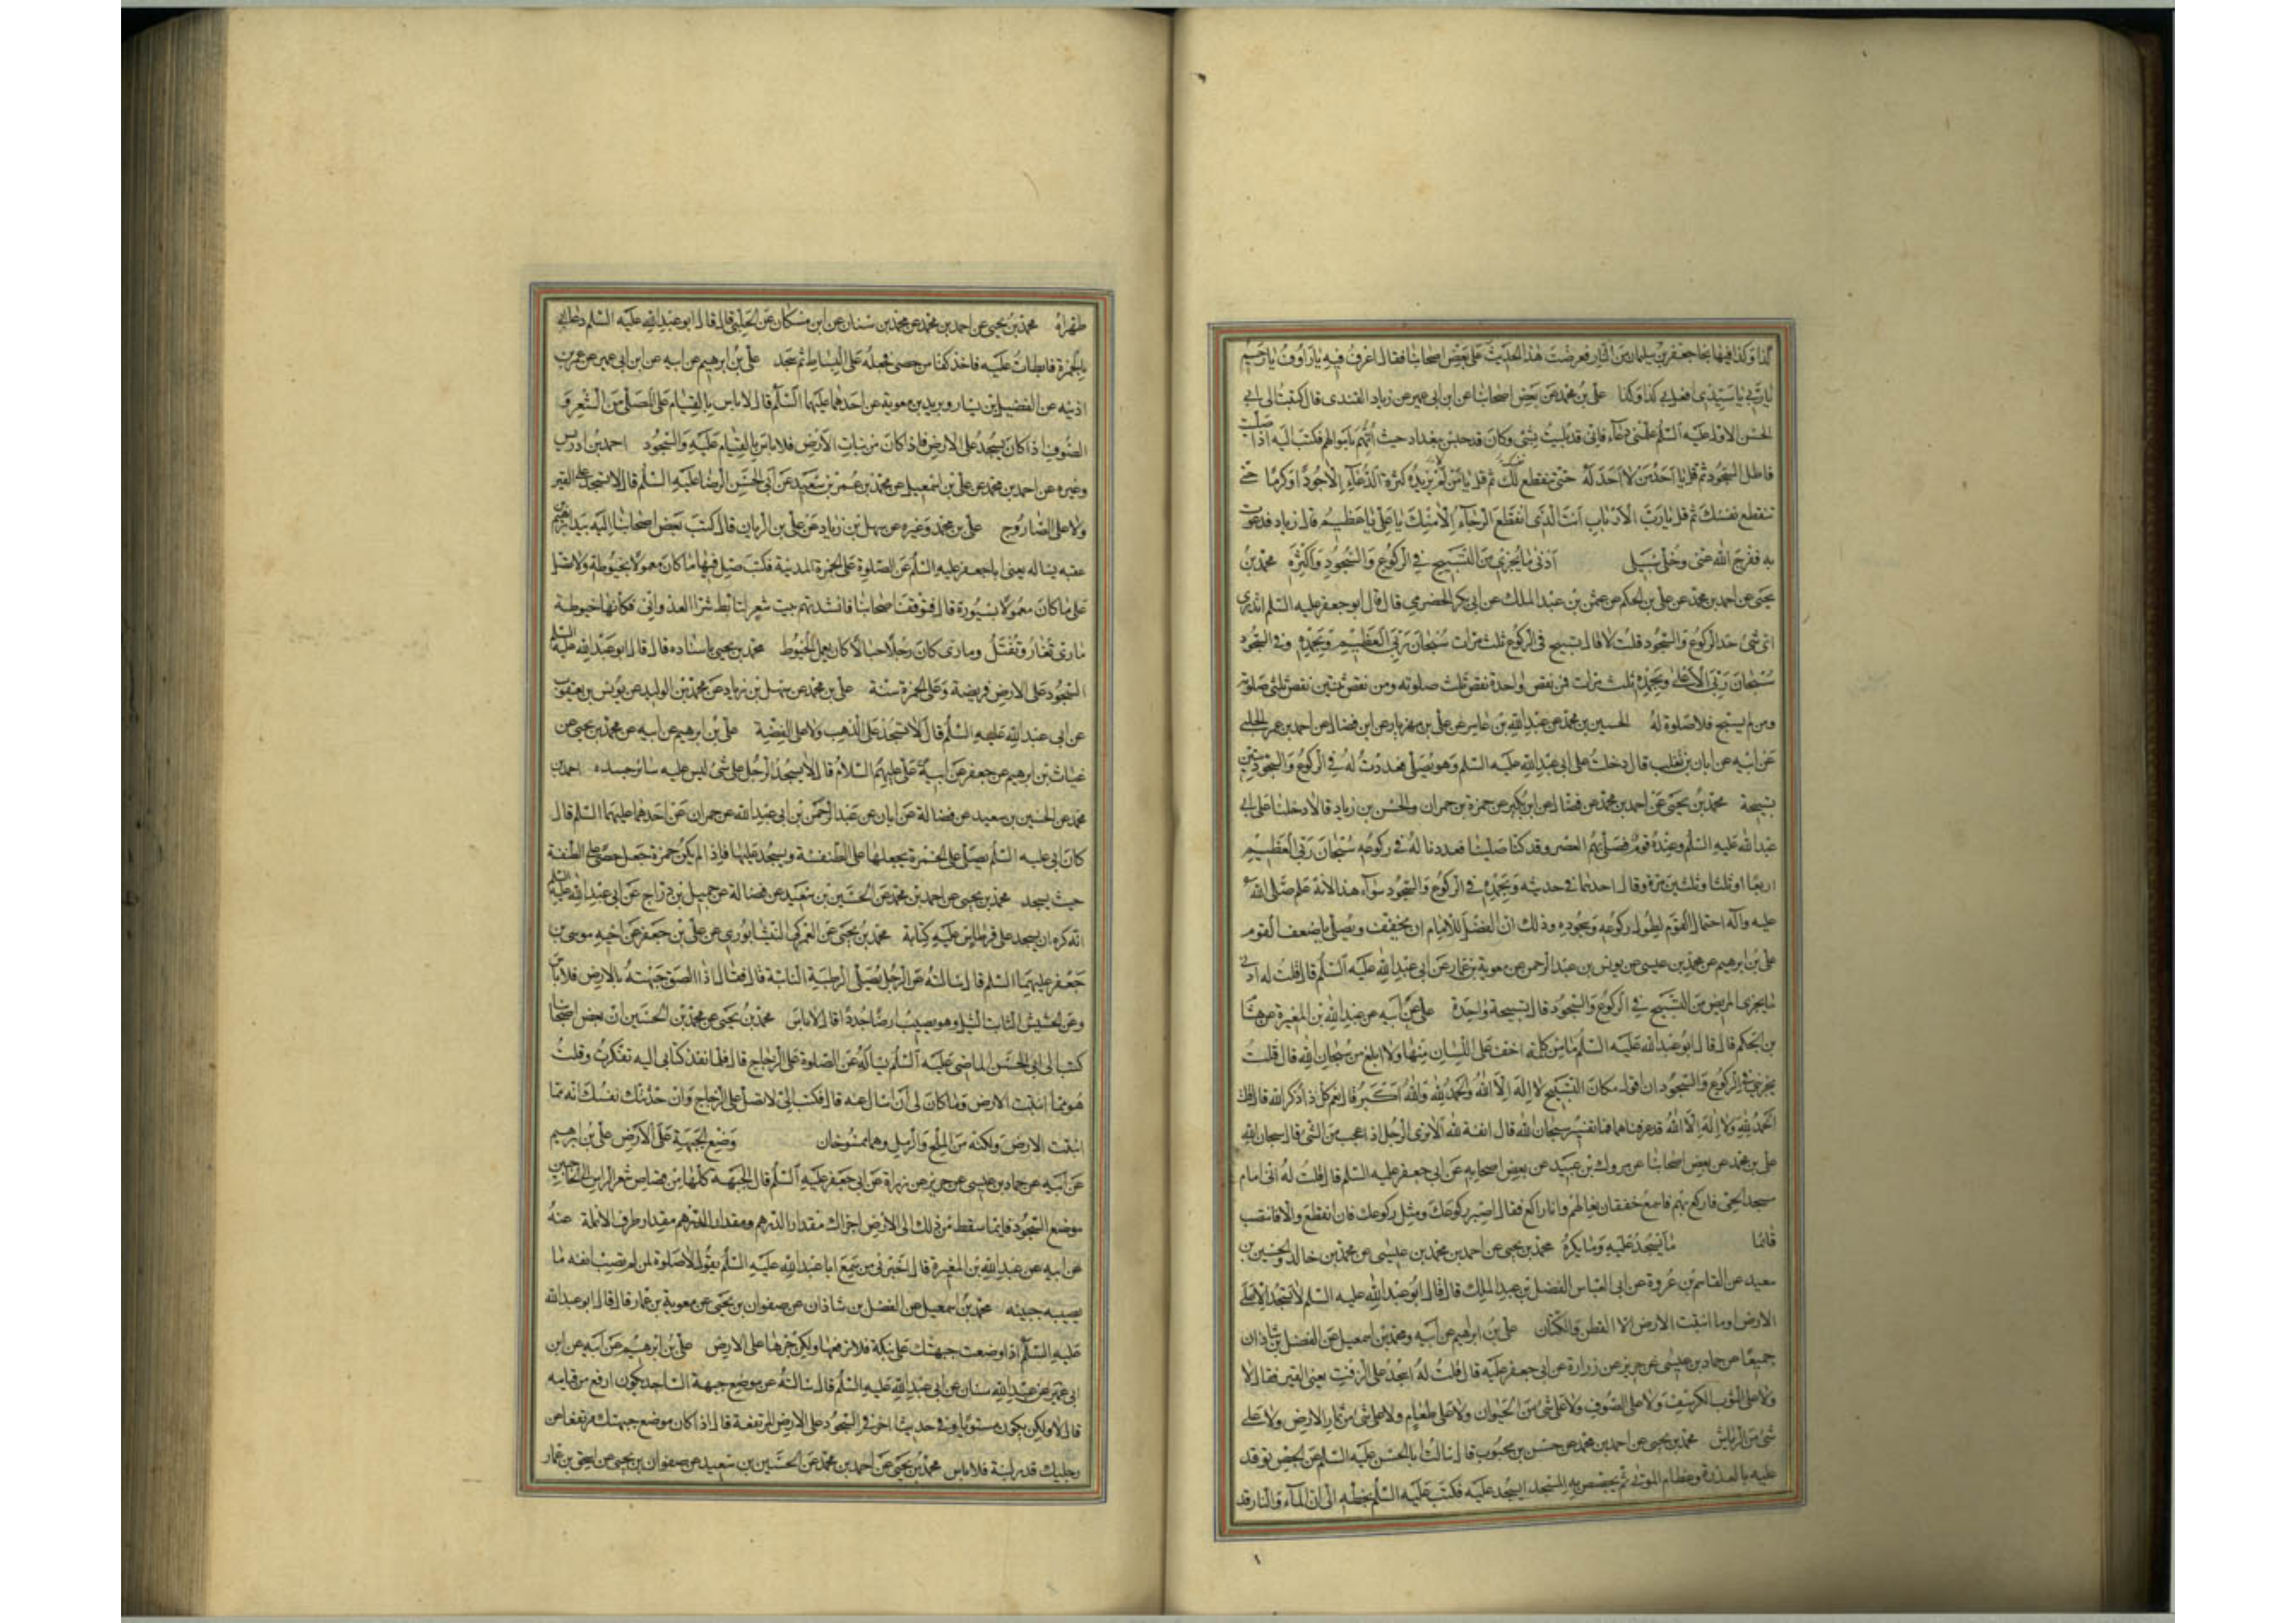 كذا وكذا فيها بحا جعفر بن سليمان من النار فعرضت هذا الحديث على بعض اصحابنا فقال اعرف فيه يا رؤوف يا رحيم
يا ربي يا سيدي افعل بي كذا وكذا علي بن محمد عن بعض اصحابنا عن ابن ابي عمير عن زياد القندي قال كتبت الى ابي
الحسن الاول عليه السلم علمني دعاء فاني قد بليت بشئ وكان قد حبس ببغداد حيث اتهم باموالهم فكتب اليه اذا صليت
فاطل السجود ثم قل يا احد من لا احد له حتى ينقطع نفسك ثم قل يا من لا يزيده كثرة الدعاء الا جودا وكرما حتى
تنقطع نفسك ثم قل يا رب الارباب انت انت الذي انقطع الرجاء الا منك يا علي يا عظيم قال زياد فدعوت
به ففرج الله عني وخلى سبيلي ادنى ما يجزي من التسبيح في الركوع والسجود واكثره محمد بن
يحيى عن احمد بن محمد عن علي بن الحكم عن عثمن بن عبد الملك عن ابي بكر الحضرمي قال قال ابو جعفر عليه السلم اتدري
اي شئ حد الركوع والسجود قلت لا قال تسبيح في الركوع ثلث مرات سبحان ربي العظيم وبحمده وفي السجود
سبحان ربي الاعلى وبحمده ثلث مرات فمن نقص واحدة نقص ثلث صلوته ومن نقص ثنتين نقص ثلثي صلوته
ومن لم يسبح فلا صلوة له الحسين بن محمد عن عبد الله بن عامر عن علي بن مهزيار عن ابن فضال عن احمد بن عمر الحلبي
عن ابيه عن ابان بن تغلب قال دخلت على ابي عبد الله عليه السلم وهو يصلي فعددت له في الركوع والسجود ستين
تسبيحة محمد بن يحيى عن احمد بن محمد عن ابن فضال عن ابن بكير عن حمزة بن حمران والحسن بن زياد قالا دخلنا على ابي
عبد الله عليه السلم وعنده قوم فصلى بهم العصر وقد كنا صلينا فعددنا له في ركوعه سبحان ربي العظيم
اربعا او ثلثا وثلثين مرة وقال احدهما في حديثه وبحمده في الركوع والسجود سواء هذا لانه علم صلى الله
عليه وآله احتمال القوم لطول ركوعه وسجوده وذلك ان الفضل للامام ان يخفف ويصلي باضعف القوم
علي بن ابرهيم عن محمد بن عيسى عن يونس بن عبد الرحمن عن معوية بن عمار عن ابي عبد الله عليه السلم قال قلت له ادنى
ما يجزي المريض من التسبيح في الركوع والسجود قال تسبيحة واحدة علي عن ابيه عن عبد الله بن المغيرة عن هشام
بن الحكم قال قال ابو عبد الله عليه السلم ما من كلمة اخف على اللسان منها ولا ابلغ من سبحان الله قال قلت
يجزيني في الركوع والسجود ان اقول مكان التسبيح لا اله الا الله والحمد لله والله اكبر قال نعم كل ذا ذكر الله قال قلت
الحمد لله ولا اله الا الله قد عرفناهما فما تفسير سبحان الله قال انفة لله الا ترى الرجل اذا عجب من الشئ قال سبحان الله
علي بن محمد عن بعض اصحابنا عن مروك بن عبيد عن بعض اصحابه عن ابي جعفر عليه السلم قال قلت له اني امام
مسجد الحي فاركع بهم فاسمع خفقان نعالهم وانا راكع فقال اصبر ركوعك ومثل ركوعك فان انقطع والا فانتصب
قائما ما يسجد عليه وما يكره محمد بن يحيى عن احمد بن محمد بن عيسى عن محمد بن خالد والحسين بن
سعيد عن القاسم بن عروة عن ابي العباس الفضل بن عبد الملك قال قال ابو عبد الله عليه السلم لا تسجد الا على
الارض او ما انبتت الارض الا القطن والكتان علي بن ابرهيم عن ابيه ومحمد بن اسمعيل عن الفضل بن شاذان
جميعا عن حماد بن عيسى عن حريز عن زرارة عن ابي جعفر عليه قال قلت له اسجد على الزفت يعني القير فقال لا
ولا على الثوب الكرسف ولا على الصوف ولا على شئ من الحيوان ولا على طعام ولا على شئ من ثمار الارض ولا على
شئ من الرياش محمد بن يحيى عن احمد بن محمد عن حسن بن محبوب قال سالت ابا الحسن عليه السلم عن الجص توقد
عليه بالعذرة وعظام الموتى ثم يجصص به المسجد ايسجد عليه فكتب عليه السلم بخطه الي ان الماء والنار قد
طهراه محمد بن يحيى عن احمد بن محمد عن محمد بن سنان عن ابن مسكان عن الحلبي قال قال ابو عبد الله عليه السلم دعا ابي
بالخمرة فابطات عليه فاخذ كفا من حصى فجعله على البساط ثم سجد علي بن ابرهيم عن ابيه عن ابن ابي عمير عن عمر بن
اذينه عن الفضيل بن يسار وبريد بن معوية عن احدهما عليهما السلم قال لا باس بالقيام على المصلى من الشعر و
الصوف اذا كان يسجد على الارض فاذا كان من نبات الارض فلا باس بالقيام عليه والسجود احمد بن ادريس
وغيره عن احمد بن محمد عن علي بن اسمعيل عن محمد بن عمر بن سعيد عن ابي الحسن الرضا عليه السلم قال لا تسجد على القير
ولا على الصاروج علي بن محمد وغيره عن سهل بن زياد عن علي بن الريان قال كتب بعض اصحابنا اليه بيد ابرهيم
عقبه يساله يعني ابا جعفر عليه السلم عن الصلوة على الخمرة المدنية فكتب صل فيها ما كان معمولا بخيوطة ولا تصل
على ما كان معمولا بسيورة قال فتوقف اصحابنا فانشدتهم بيت شعر لتابط شرا العدواني فكانها خيوطة
ماري تغار وتفتل وماري كان رجلا حبالا كان يعمل الخيوط محمد بن يحيى باسناده قال قال ابو عبد الله عليه السلم
السجود على الارض فريضة وعلى الخمرة سنة علي بن محمد عن سهل بن زياد عن محمد بن الوليد عن يونس بن يعقوب
عن ابي عبد الله عليه السلم قال لا تسجد على الذهب ولا على الفضة علي بن ابرهيم عن ابيه عن محمد بن يحيى عن
غياث بن ابرهيم عن جعفر عن ابيه عن علي عليهم السلام قال لا يسجد الرجل على شئ ليس عليه سائر جسده احمد بن
محمد عن الحسين بن سعيد عن فضالة عن ابان عن عبد الرحمن بن ابي عبد الله عن حمران عن احدهما عليهما السلم قال
كان ابي عليه السلم يصلي على الخمرة يجعلها على الطنفسة ويسجد عليها فاذا لم يكن خمرة جعل حصى على الطنفسة
حيث يسجد محمد بن يحيى عن احمد بن محمد عن الحسين بن سعيد عن فضالة عن جميل بن دراج عن ابي عبد الله عليه السلم
انه كره ان يسجد على قرطاس عليه كتابة محمد بن يحيى عن العمركي النيشابوري عن علي بن جعفر عن اخيه موسى بن
جعفر عليهما السلم قال سالته عن الرجل يصلي على الرطبة النابتة قال فقال اذا الصق جبهته بالارض فلا باس
وعن الحشيش النابت الثيل وهو يصيب ارضا جددا قال لا باس محمد بن يحيى عن محمد بن الحسين ان بعض اصحابنا
كتب الى ابي الحسن الماضي عليه السلم يساله عن الصلوة على الزجاج قال فلما نفذ كتابي اليه تفكرت وقلت
هو مما انبتت الارض وما كان لي ان اسال عنه قال فكتب الي لا تصل على الزجاج وان حدثتك نفسك انه مما
انبتت الارض ولكنه من الملح والرمل وهما ممسوخان وضع الجبهة على الارض علي بن ابرهيم
عن ابيه عن حماد بن عيسى عن حريز عن زرارة عن ابي جعفر عليه السلم قال الجبهة كلها من قصاص شعر الراس الى الحاجبين
موضع السجود فايما سقط من ذلك الى الارض اجزاك مقدار الدرهم ومقدار الدرهم مقدار طرف الانملة عنه
عن ابيه عن عبد الله بن المغيرة قال اخبرني من سمع ابا عبد الله عليه السلم يقول لا صلوة لمن لم تصب انفه ما
يصيب جبينه محمد بن اسمعيل عن الفضل بن شاذان عن صفوان بن يحيى عن معوية بن عمار قال قال ابو عبد الله
عليه السلم اذا وضعت جبهتك على نبكة فلا ترفعها ولكن جرها على الارض علي بن ابرهيم عن ابيه عن ابن
ابي عمير عن عبد الله سنان عن ابي عبد الله عليه السلم قال سالته عن موضع جبهة الساجد يكون ارفع من قيامه
قال لا ولكن يكون مستويا وفي حديث اخر في السجود على الارض المرتفعة قال اذا كان موضع جبهتك مرتفعا عن
رجليك قدر لبنة فلا باس محمد بن يحيى عن احمد بن محمد عن الحسين بن سعيد عن صفوان بن يحيى عن اسحق بن عمار